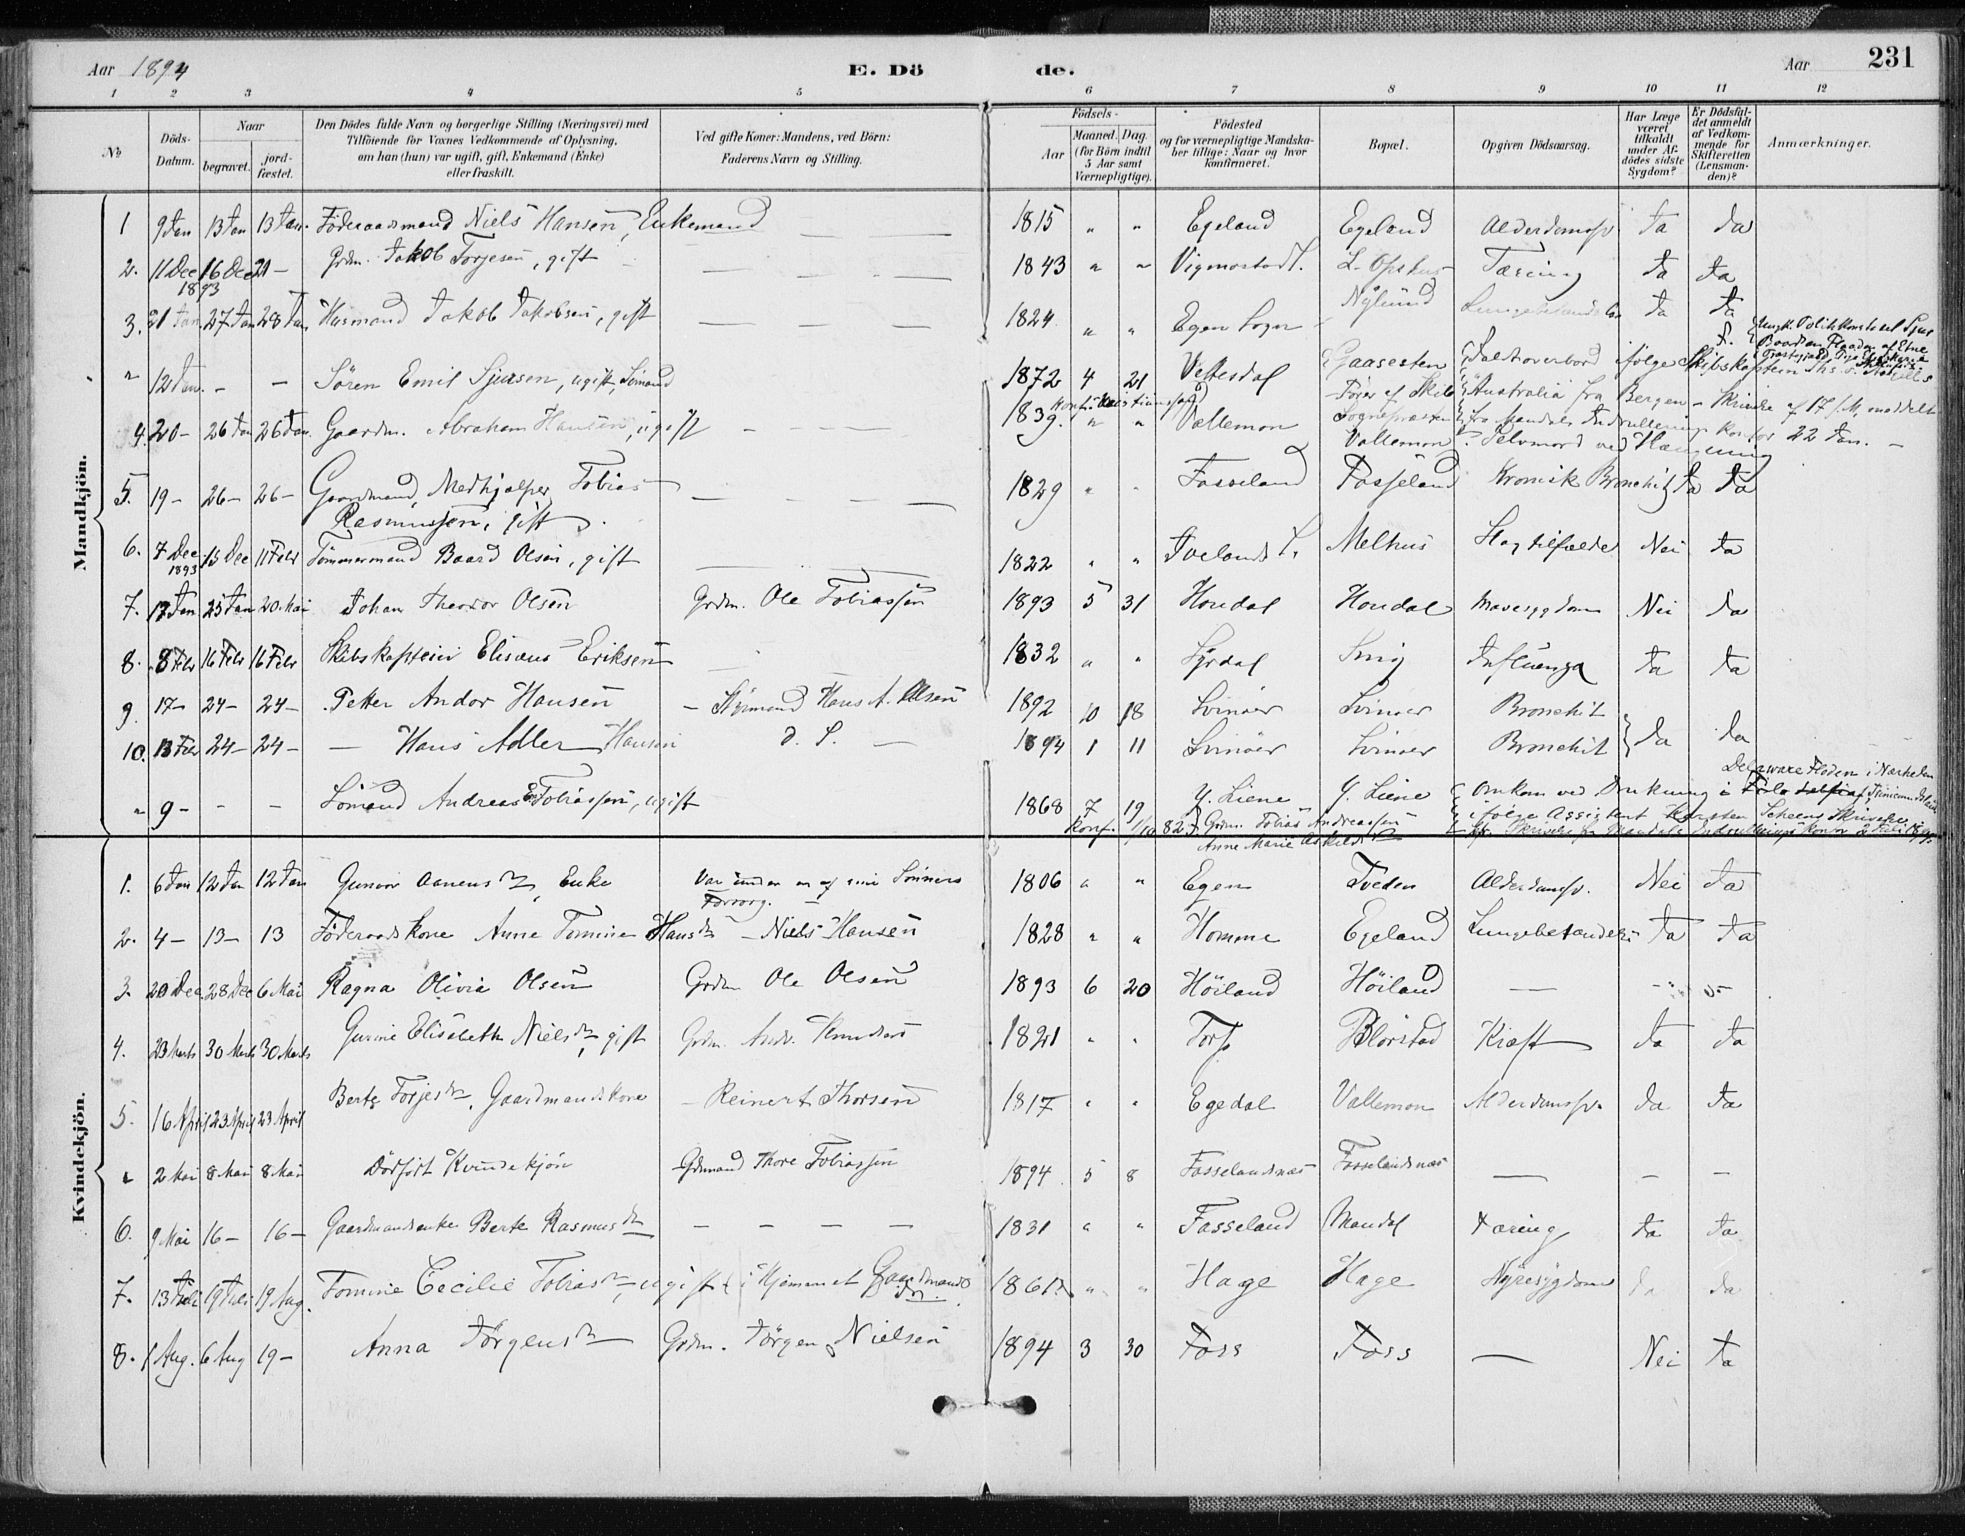 Aar 1894 E. Dö de. Aar 231
1 2 3 4 5 6 7 8 9 10 11 12
No
Döds-Datum.
Naar begravet. jordfæstet.
Den Dödes fulde Navn og borgerlige Stilling (Næringsvei) med Tilföiende for Voxnes Vedkommende af Oplysning, om han (hun) var ugift, gift, Enkemand (Enke) eller fraskilt.
Ved gifte Koner: Mandens, ved Börn: Faderens Navn og Stilling.
Födsels- Aar Maaned. Dag. (for Börn indtil 5 Aar samt Værnepligtige).
Födested og for værnepligtige Mandskaber tillige: Naar og hvor konfirmeret.
Bopæl.
Opgiven Dödsaarsag.
Har Læge været tilkaldt under Afdödes sidste Sygdom?
Er Dödsfaldet anmeldt af Vedkommende for Skifteretten (Lensmanden)?
Anmærkninger.
Mandkjön.
1 9 Jan 13 Jan 13 Jan. Föderaadsmand Niels Hansen, Enkemand 1815 " " Egeland Egeland Alderdomssv Ja Ja
2. 11 Dec 1893 16 Dec 21 — Grdm. Jakob Torjesen, gift 1843 " " Vigmostad S. L. Opshus Tæring Ja Ja
3. 21 Jan 27 Jan 28 Jan Husmand Jakob Jakobsen, gift 1824 " " Egen Sogn Nylund Lungebetændelse Ja Ja
" 12 Jan. - - Sören Emil Sjursen, ugift, Sömand 1872 4 21 Vettesdal Gaasesten Faldt overbord ifølge Skibskaptein
Australia fra Bergen - Skrivelse af 17/1, meddelt
4. 20 - 26 Jan 26 Jan. Gaardm. Abraham Hansen, ugift 1839. " " Vallemon Vallemon Selvmord ved Hængning
fra Mandals Indrulleringskontor 22 Jan. -
5. 19 - 26 - 26 - Gaardmand, Medhjælper Tobias Rasmussen, gift 1829 " " Fasseland Fasseland Kronisk Bronchit Ja Ja
6. 7 Dec. 1893 15 Dec 11 Febr Tömmermand Baard Olsen, gift 1822 " " Ivelands S. Melhus Slagtilfælde Nei Ja
7. 17 Jan 25 Jan 20 Mai Johan Theodor Olsen Grdm. Ole Tobiassen 1893 5 31 Houdal Houdal Mavesygdom Nei Ja
8. 8 Febr 16 Febr 16 Febr Skibskaptein Elisæus Eriksen 1832 " " Lyrdal Snig Influenza Ja Ja
9. 17 - 24 - 24 - Petter Andor Hansen - Styrmand Hans A. Olsen 1892 10 18 Svinöer Svinöer Bronchit
10. 13 Febr 24 - 24 - — Hans Adler Hansen d. S. — 1894 1 11 Svinöer Svinöer Bronchit Ja Ja
" 9 - - - Sömand Andreas Tobiassen, ugift 1868 7 19 Y. Liene Y. Liene Omkom ved Drukning i Delaware Floden i Nærheden
Konf. 1/10 82. Grdm. Tobias Andreassen ifølge Assistent Karsten Scheens Skrivelse
Anne Marie Askildsdtr
Kvindekjön.
1. 6 Jan 12 Jan 12 Jan Gunvor Aanensdtr, Enke Var under en af sine Sönners Forsorg. 1806 " " Egen Tveden Alderdomssv. Nei Ja
2. 4 - 13 - 13 Föderaadskone Anne Tomine Hansdtr - Niels Hansen 1828 " " Homme Egeland Lungebetændelse Ja Ja
3. 20 Dec. 28 Dec 6 Mai Ragna Olivia Olsen Grdm Ole Olsen 1893 6 20 Höiland Höiland — - -
4. 23 Marts 30 Marts 30 Marts Gurine Elisabeth Nielsdtr, gift Grdm. Andr. Knudsen 1821 " " Torp Blörstad Kræft Ja Ja
5. 16 April 23 April 23 April Berte Torjesdtr, Gaardmandskone - Reinert Thorsen 1817 " " Egedal Vallemon Alderdomssv. Ja Ja
" 2 Mai 8 Mai 8 Mai Dödfödt Kvindekjön Grdmand Thore Tobiassen 1894 5 8 Fasselandsnæs Fasselandsnæs — - -
6. 9 Mai 16 - 16 - Gaardmandsenke Berte Rasmusdtr - - - - 1831 " " Fasseland Mandal Tæring Ja Ja
7. 13 Juli 19 Juli 19 Aug. Tomine Cecilie Tobiasdtr, ugift, i Hjemmet Gaardmands 1861 " " Hage Hage Nyresygdom Ja Ja
8. 1 Aug. 6 Aug 19 - Anna Jörgensdtr Grdm. Jörgen Nielsen 1894 3 30 Foss Foss — Nei Ja